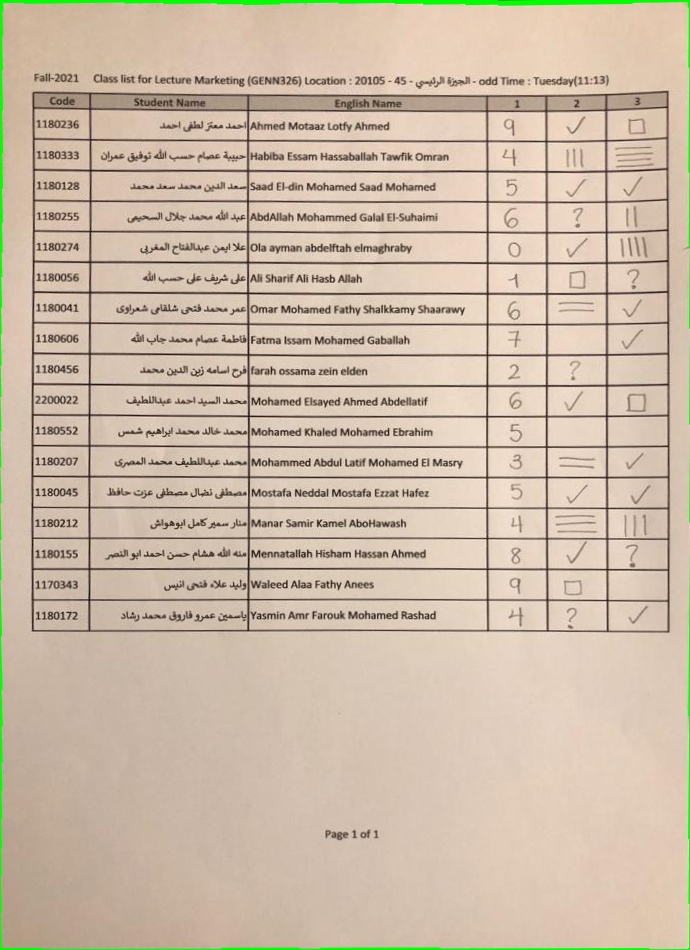 Fall-2021 Class list for Lecture Marketing (GENN326) Location : 20105 - 45 - الجيزة الرئيسي - odd Time : Tuesday(11:13)
Code Student Name English Name 1 2 3
1180236 احمد معتز لطفى احمد Ahmed Motaaz Lotfy Ahmed 9 ✓ □
1180333 حبيبة عصام حسب الله توفيق عمران Habiba Essam Hassaballah Tawfik Omran 4 ||| ☰
1180128 سعد الدين محمد سعد محمد Saad El-din Mohamed Saad Mohamed 5 ✓ ✓
1180255 عبد الله محمد جلال السحيمى AbdAllah Mohammed Galal El-Suhaimi 6 ? ||
1180274 علا ايمن عبدالفتاح المغربى Ola ayman abdelftah elmaghraby 0 ✓ ||||
1180056 على شريف على حسب الله Ali Sharif Ali Hasb Allah 1 □ ?
1180041 عمر محمد فتحى شلقامى شعراوى Omar Mohamed Fathy Shalkkamy Shaarawy 6 = ✓
1180606 فاطمة عصام محمد جاب الله Fatma Issam Mohamed Gaballah 7 ✓
1180456 فرح اسامه زين الدين محمد farah ossama zein elden 2 ?
2200022 محمد السيد احمد عبداللطيف Mohamed Elsayed Ahmed Abdellatif 6 ✓ □
1180552 محمد خالد محمد ابراهيم شمس Mohamed Khaled Mohamed Ebrahim 5
1180207 محمد عبداللطيف محمد المصرى Mohammed Abdul Latif Mohamed El Masry 3 = ✓
1180045 مصطفى نضال مصطفى عزت حافظ Mostafa Neddal Mostafa Ezzat Hafez 5 ✓ ✓
1180212 منار سمير كامل ابوهواش Manar Samir Kamel AboHawash 4 ☰ |||
1180155 منه الله هشام حسن احمد ابو النصر Mennatallah Hisham Hassan Ahmed 8 ✓ ?
1170343 وليد علاء فتحى انيس Waleed Alaa Fathy Anees 9 □
1180172 ياسمين عمرو فاروق محمد رشاد Yasmin Amr Farouk Mohamed Rashad 4 ? ✓
Page 1 of 1